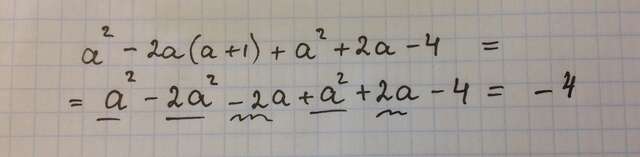 a² - 2a(a+1) + a² + 2a - 4 =
= a² - 2a² - 2a + a² + 2a - 4 = -4